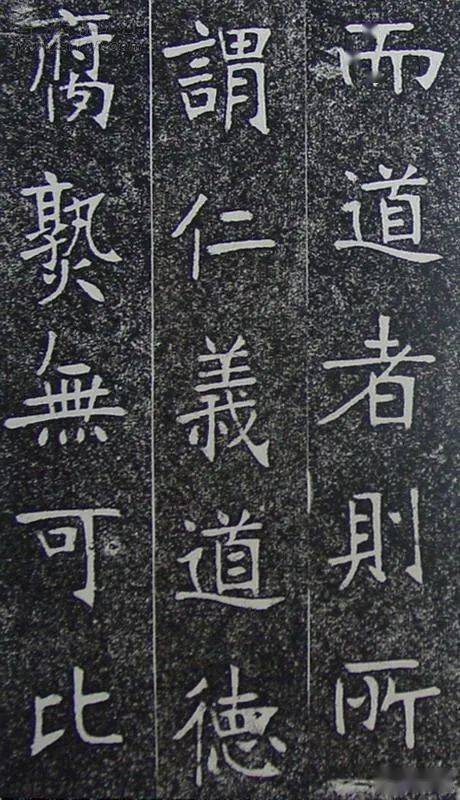 而道者則所
謂仁義道德
腐熟無可比